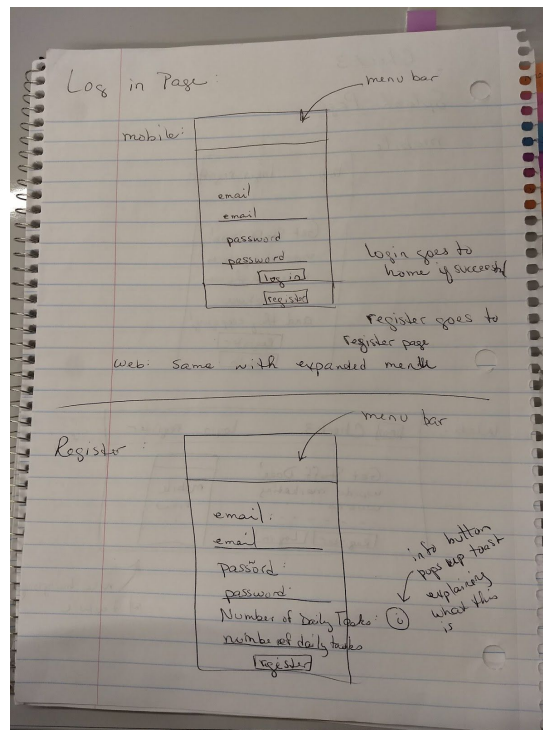 Log in Page:
menu bar
mobile:
email
email
password
password
log in
register
login goes to
home if successful
register goes to
register page
web: same with expanded menu
menu bar
Register:
email:
email
passord:
password:
Number of Daily Tasks: i
number of daily tasks
register
info button
pops up toast
explaining
what this
is